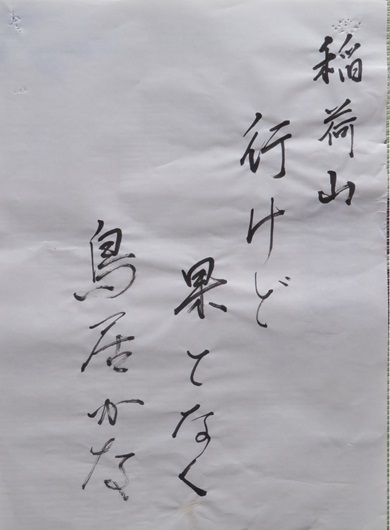 稲荷山
行けど
果てなく
鳥居かな